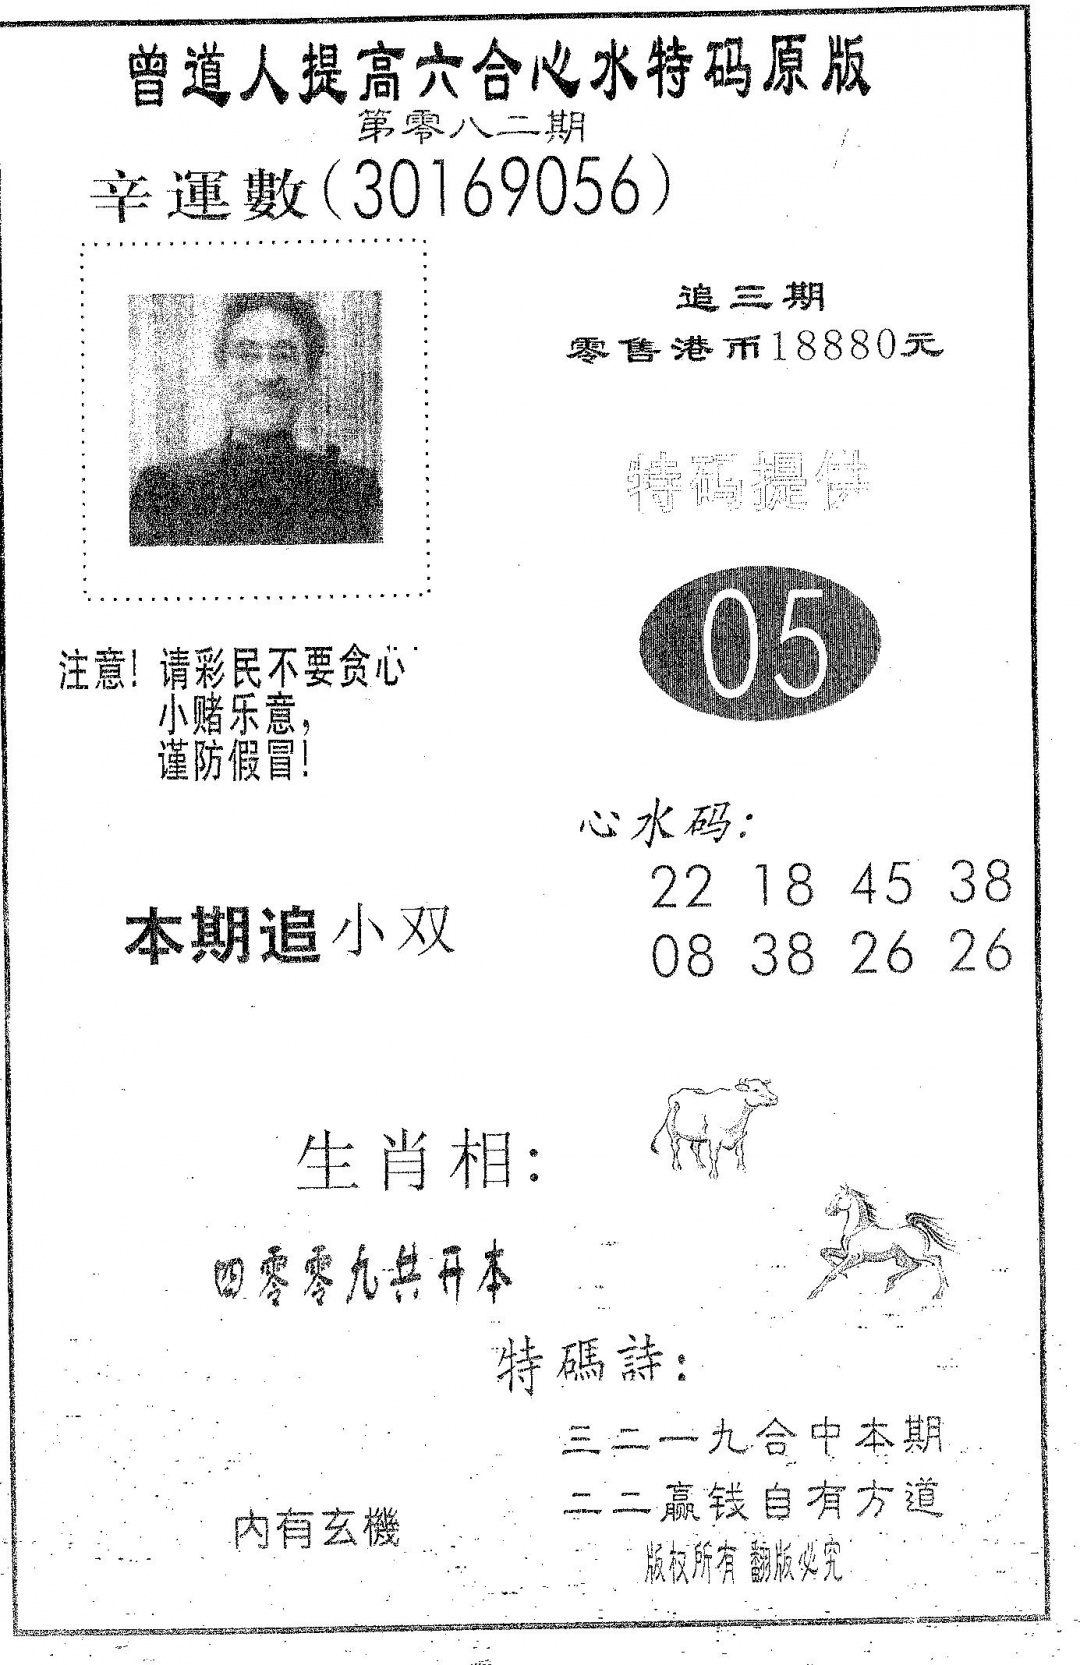 曾道人提高六合心水特码原版
第零八二期
辛運數(30169056)
追三期
零售港币18880元
特码提供
05
注意!请彩民不要贪心
小赌乐意,
谨防假冒!
心水码:
22 18 45 38
08 38 26 26
本期追小双
生肖相:
四零零九共开本
特碼詩:
三二一九合中本期
二二赢钱自有方道
内有玄機
版权所有 翻版必究